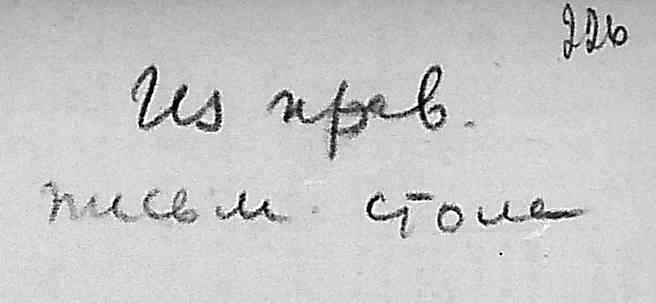 226
Из прав.
письм. стола